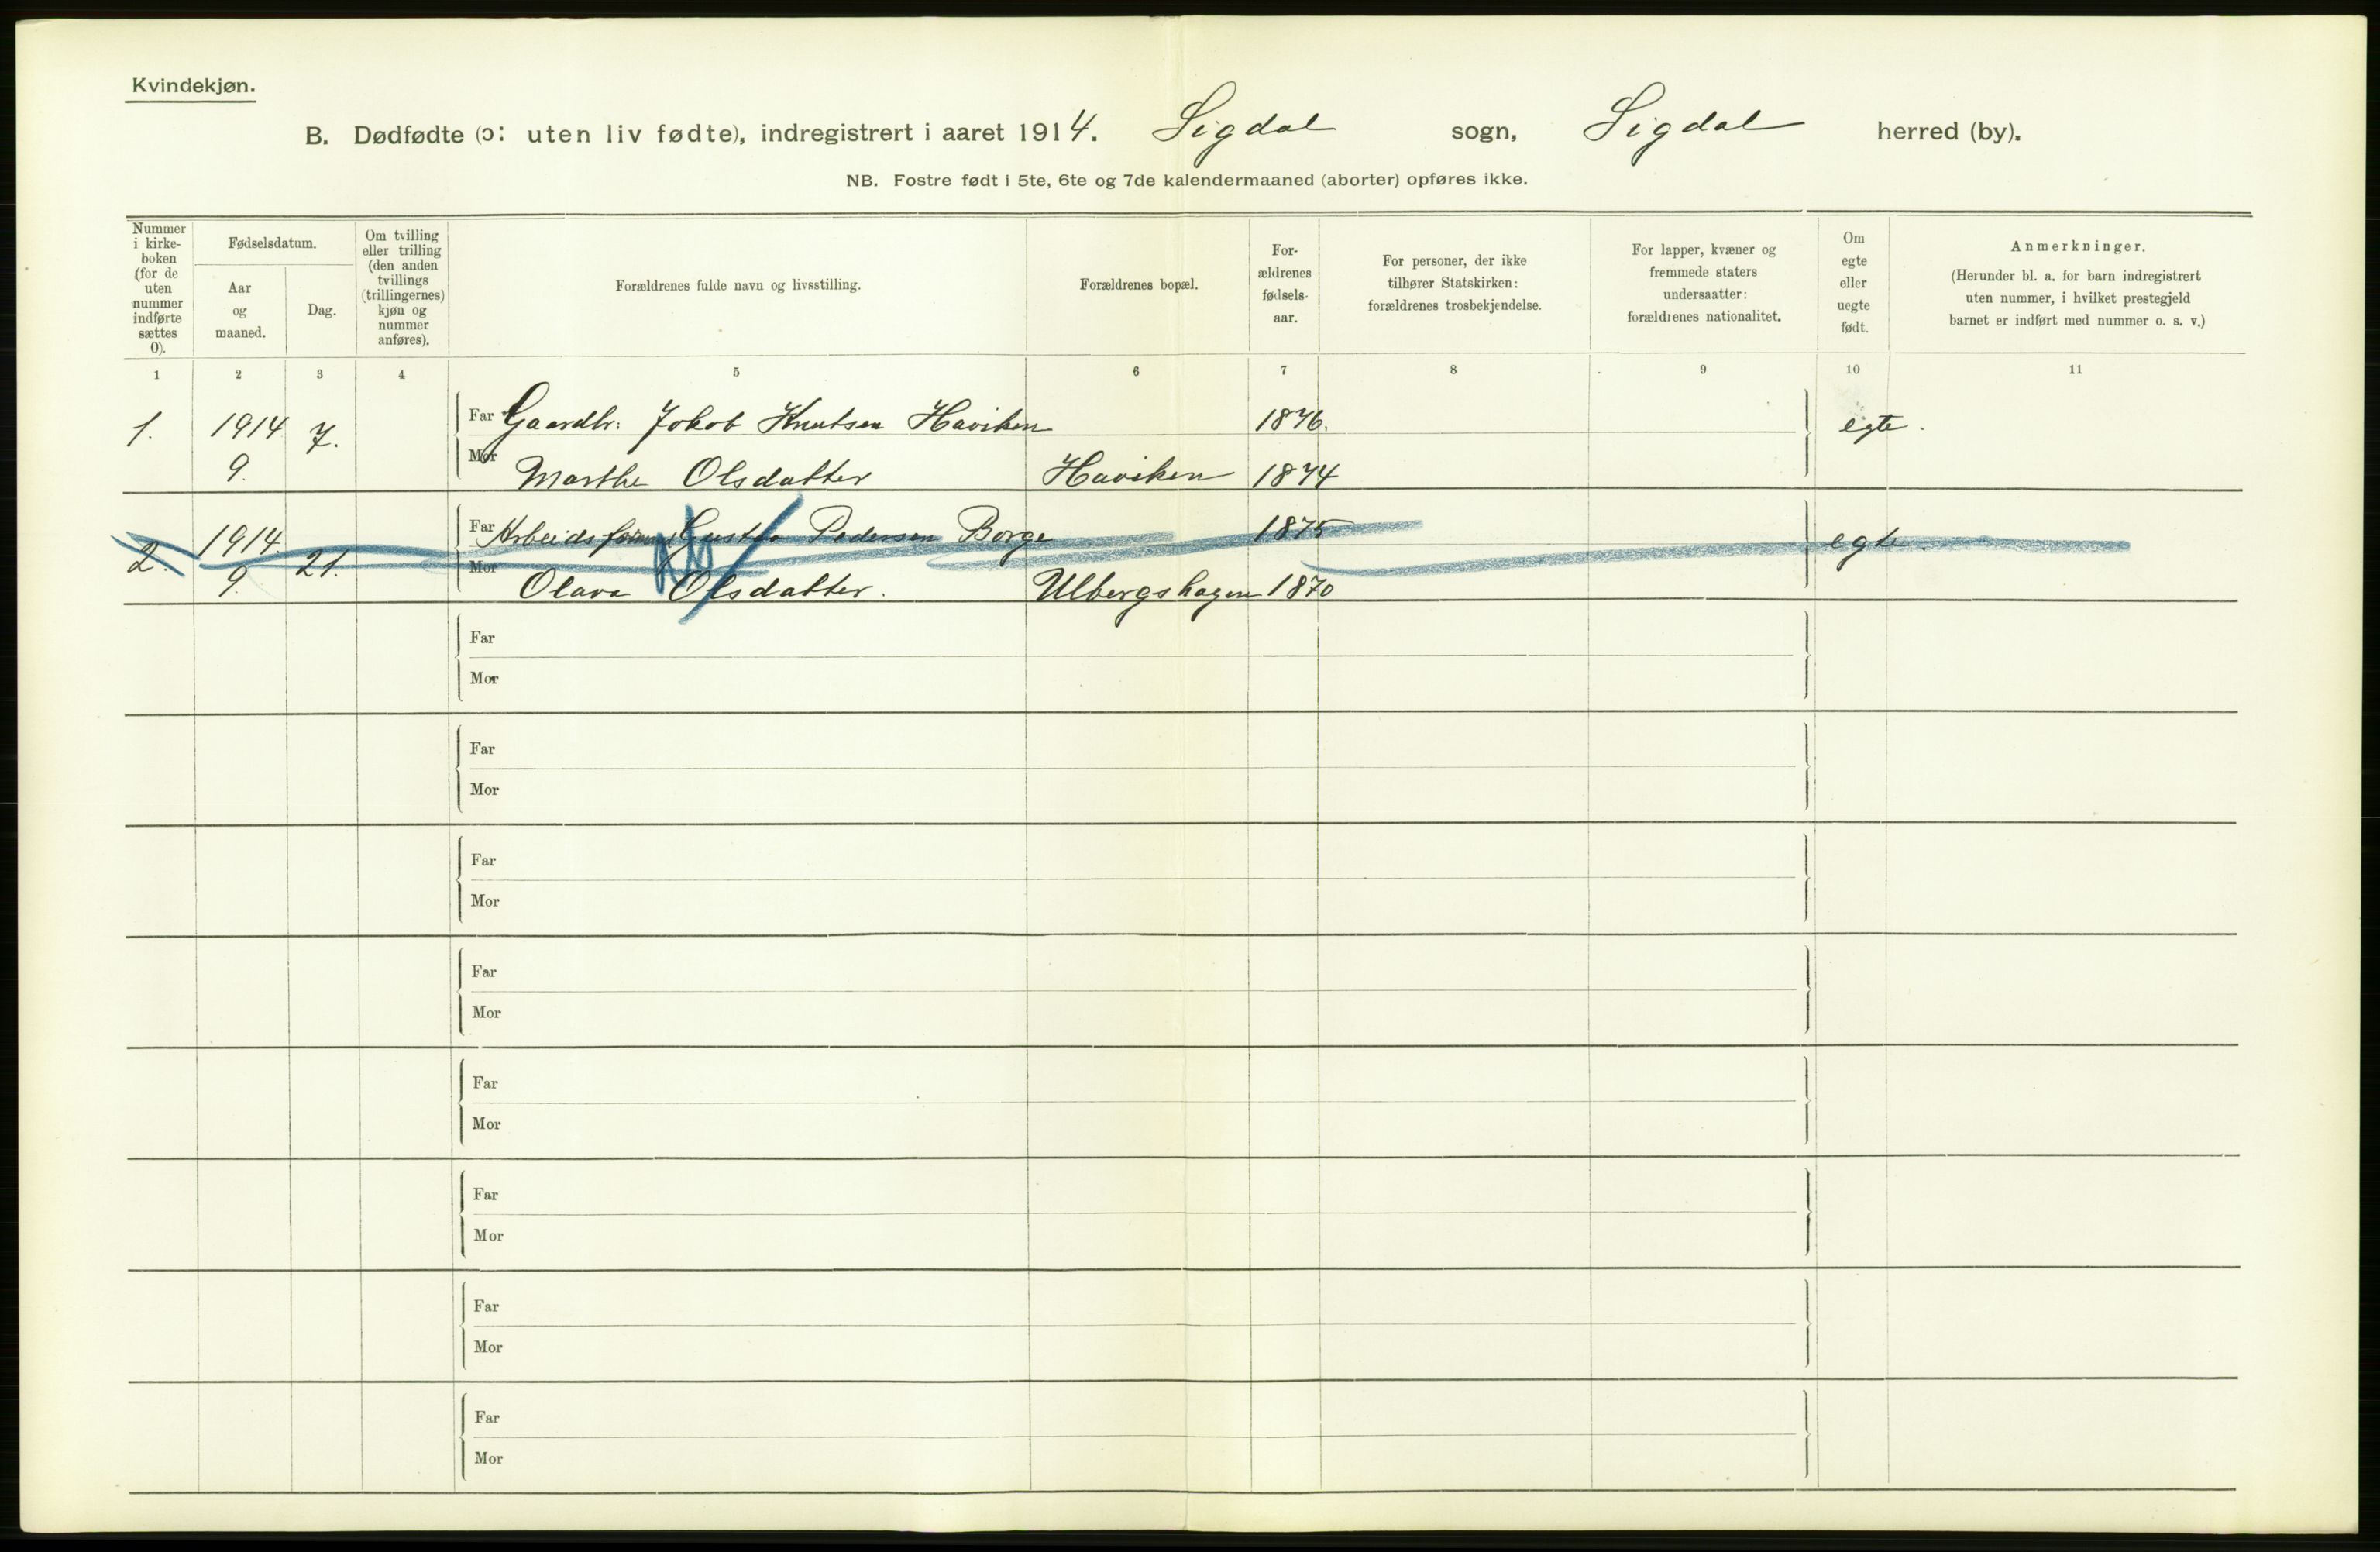 Kvindekjøn.
B. Dødfødte (ɔ: uten liv fødte), indregistrert i aaret 1914. Sigdal sogn, Sigdal herred (by).
NB. Fostre født i 5te, 6te og 7de kalendermaaned (aborter) opføres ikke.
Nummer i kirke-boken (for de uten nummer indførte sættes 0).
Fødselsdatum.
Aar og maaned.
Dag.
Om tvilling eller trilling (den anden tvillings (trillingernes) kjøn og nummer anføres).
Forældrenes fulde navn og livsstilling.
Forældrenes bopæl.
For-ældrenes fødsels-aar.
For personer, der ikke tilhører Statskirken: forældrenes trosbekjendelse.
For lapper, kvæner og fremmede staters undersaatter: forældrenes nationalitet.
Om egte eller uegte født.
Anmerkninger.
(Herunder bl. a. for barn indregistrert uten nummer, i hvilket prestegjeld barnet er indført med nummer o. s. v.)
1 2 3 4 5 6 7 8 9 10 11
1. 1914 7. Far Gaardbr. Jakob Knutsen Haviken 1876. egte.
9. Mor Marthe Olsdatter Haviken 1874
2. 1914. 21. Far Gustav Pedersen Borge 1875 egte.
9. Mor Olava Olsdatter. Ulbergshagen 1870
Far
Mor
Far
Mor
Far
Mor
Far
Mor
Far
Mor
Far
Mor
Far
Mor
Far
Mor